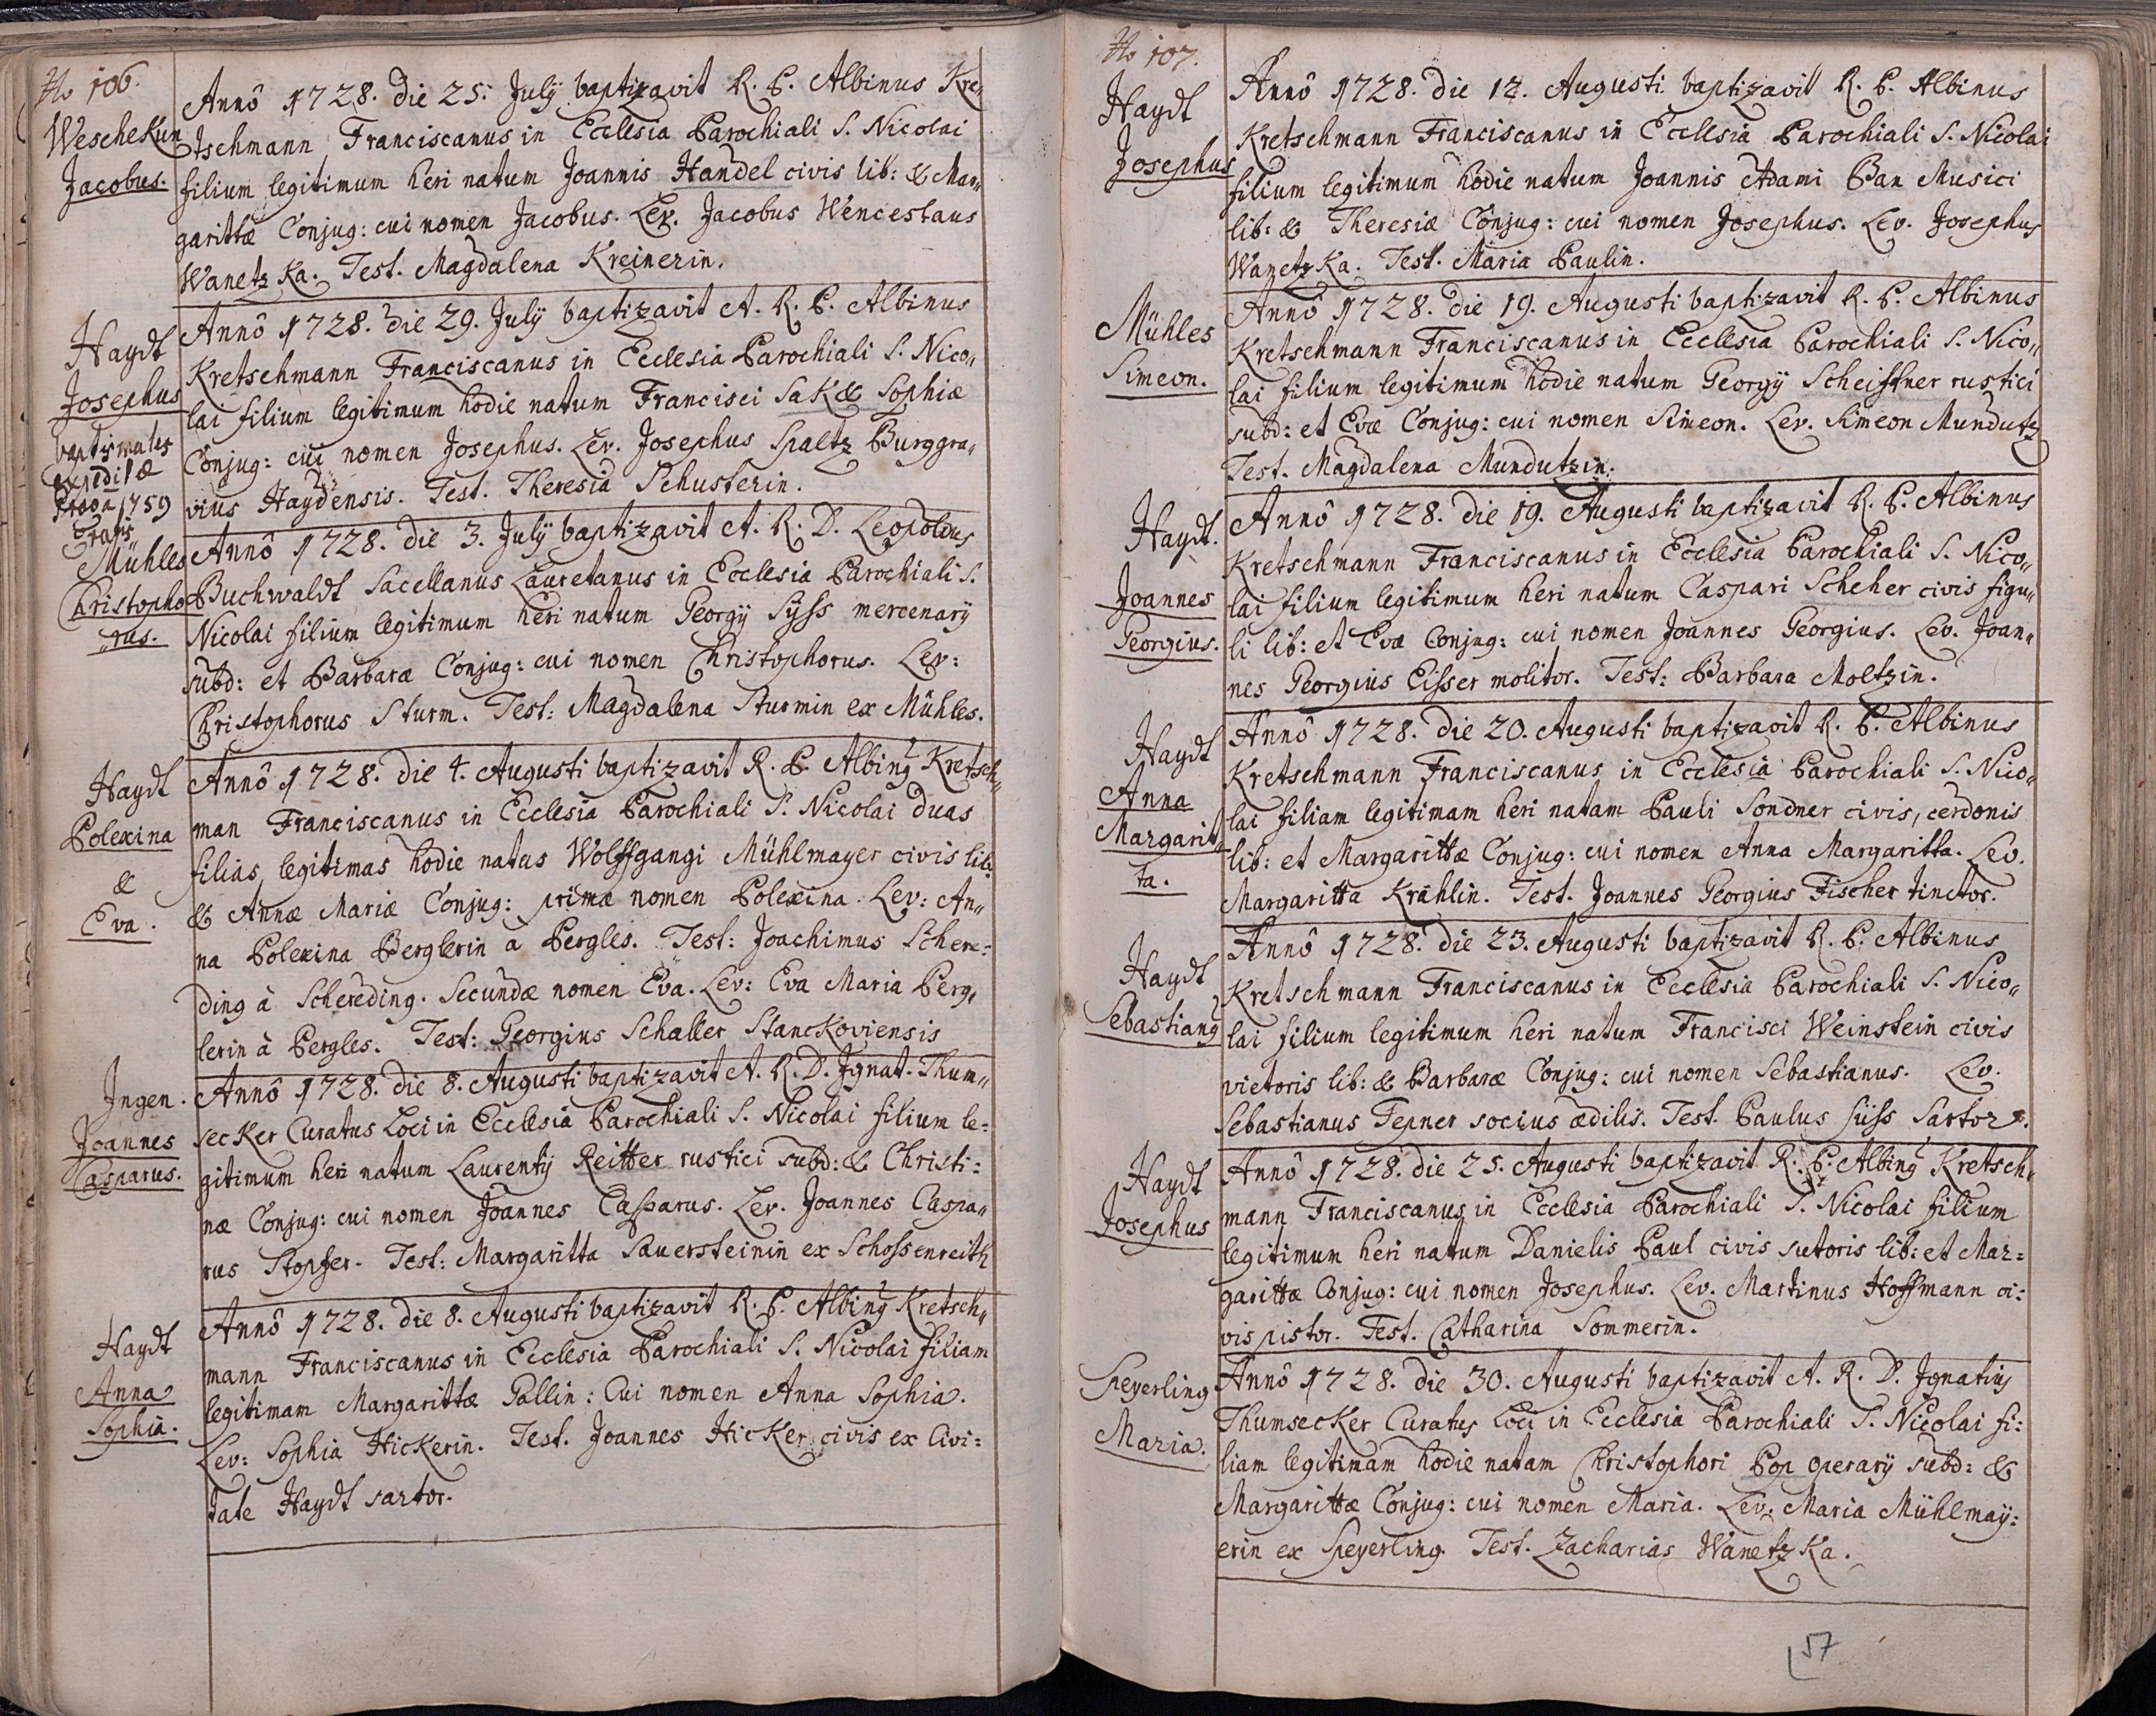 No 106.
Weschekun
Jacobus.
Annô 1728. die 25. Julÿ baptizavit R. P. Albinus Kre„
tschmann Franciscanus in Ecclesia Parochiali S. Nicolai
filium legitimum heri natum Joannis Handel civis lib: & Mar„
garittæ Conjug: cui nomen Jacobus. Lev. Jacobus Wenceslaus
Wanetzka. Test. Magdalena Kreinerin.
Haydt
Josephus
baptismales
expeditæ
1759
Annô 1728. die 29. Julÿ baptizavit A. R. P. Albinus
Kretschmann Franciscanus in Ecclesia Parochiali S. Nico„
lai filium legitimum hodie natum Francisci Sak & Sophiæ
Conjug: cui nomen Josephus. Lev. Josephus Spaltz Burggra„
vius Haydensis. Test. Theresia Schusterin.
Mühles
Christopho
rus.
Annô 1728. die 3. Julÿ baptizavit A. R. D. Leopoldus
Buchwaldt Sacellanus Lauretanus in Ecclesia Parochiali S.
Nicolai filium legitimum heri natum Georgÿ Sÿss mercenarÿ
subd: et Barbaræ Conjug: cui nomen Christophorus. Lev:
Christophorus Sturm. Test: Magdalena Sturmin ex Mühles.
Haydt
Polexina
&
Eva.
Annô 1728. die 4. Augusti baptizavit R. P. Albing Kretsch„
man Franciscanus in Ecclesia Parochiali S. Nicolai duas
filias legitimas hodie natas Wolffgangi Mühlmayer civis lib:
& Annæ Mariæ Conjug: primæ nomen Polexina. Lev: An„
na Polexina Berglerin a Pergles. Test: Joachimus Schere:
ding à Schereding. Secundæ nomen Eva. Lev: Eva Maria Perg„
lerin à Pergles. Test: Georgius Schaller Stanckoviensis
Ingen.
Joannes
Casparus.
Annô 1728. die 8. Augusti baptizavit A. R. D. Ignat. Thum„
secker Curatus Loci in Ecclesia Parochiali S. Nicolai filium le:
gitimum heri natum Laurentÿ Reitter rustici subd: & Christi:
næ Conjug: cui nomen Joannes Casparus. Lev. Joannes Caspa„
rus Stopfer. Test: Margaritta Sauersteinin ex Schossenreith
Haydt
Anna
Sophia.
Annô 1728. die 8. Augusti baptizavit R. P. Albing Kretsch„
mann Franciscanus in Ecclesia Parochiali S. Nicolai filiam
legitimam Margarittæ Pallin: Cui nomen Anna Sophia.
Lev: Sophia Hickerin. Test. Joannes Hicker civis ex Civi:
tate Haydt sartor.
No 107.
Haydt
Josephus
Annô 1728. die 12. Augusti baptizavit R. P. Albinus
Kretschmann Franciscanus in Ecclesia Parochiali S. Nicolai
filium legitimum hodie natum Joannis Adami Pan Musici
lib: & Theresiæ Conjug: cui nomen Josephus. Lev. Josephus
Wanetzka. Test. Maria Paulin.
Mühles
Simeon.
Annô 1728. die 19. Augusti baptizavit R. P. Albinus
Kretschmann Franciscanus in Ecclesia Parochiali S. Nico„
lai filium legitimum hodie natum Georgÿ Scheiffner rustici
subd: et Evæ Conjug: cui nomen Simeon. Lev. Simeon Mundutz
Test. Magdalena Mundutzin.
Haydt.
Joannes
Georgius.
Annô 1728. die 19. Augusti baptizavit R. P. Albinus
Kretschmann Franciscanus in Ecclesia Parochiali S. Nico„
lai filium legitimum heri natum Caspari Scheher civis figu„
li lib: et Evæ Conjug: cui nomen Joannes Georgius. Lev. Joan„
nes Georgius Eisser molitor. Test: Barbara Moltzin.
Haydt
Anna
Margarit„
ta.
Annô 1728. die 20. Augusti baptizavit R. P. Albinus
Kretschmann Franciscanus in Ecclesia Parochiali S. Nico„
lai filiam legitimam heri natam Pauli Sondner civis, cerdonis
lib: et Margarittæ Conjug: cui nomen Anna Margaritta. Lev.
Margaritta Krählin. Test. Joannes Georgius Fischer tinctor.
Haydt
Sebastiang
Annô 1728. die 23. Augusti baptizavit R. P. Albinus
Kretschmann Franciscanus in Ecclesia Parochiali S. Nico„
lai filium legitimum heri natum Francisci Weinstein civis
vietoris lib: & Barbaræ Conjug: cui nomen Sebastianus. Lev.
Sebastianus Tepner socius ædilis. Test. Paulus Süss Sartor.
Haydt
Josephus
Annô 1728. die 25. Augusti baptizavit R. P. Albing Kretsch„
mann Franciscanus in Ecclesia Parochiali S. Nicolai filium
legitimum heri natum Danielis Paul civis sutoris lib: et Mar=
garittæ Conjug: cui nomen Josephus. Lev. Martinus Hoffmann ci:
vis pistor. Test. Catharina Sommerin.
Speyerling
Maria.
Annô 1728. die 30. Augusti baptizavit A. R. D. Ignatius
Thumsecker Curatus Loci in Ecclesia Parochiali S. Nicolai fi:
liam legitimam hodie natam Christophori Pop operarÿ subd: &
Margarittæ Conjug: cui nomen Maria. Lev. Maria Mühlmaÿ:
erin ex Speyerling. Test. Zacharias Wanetzka.
57